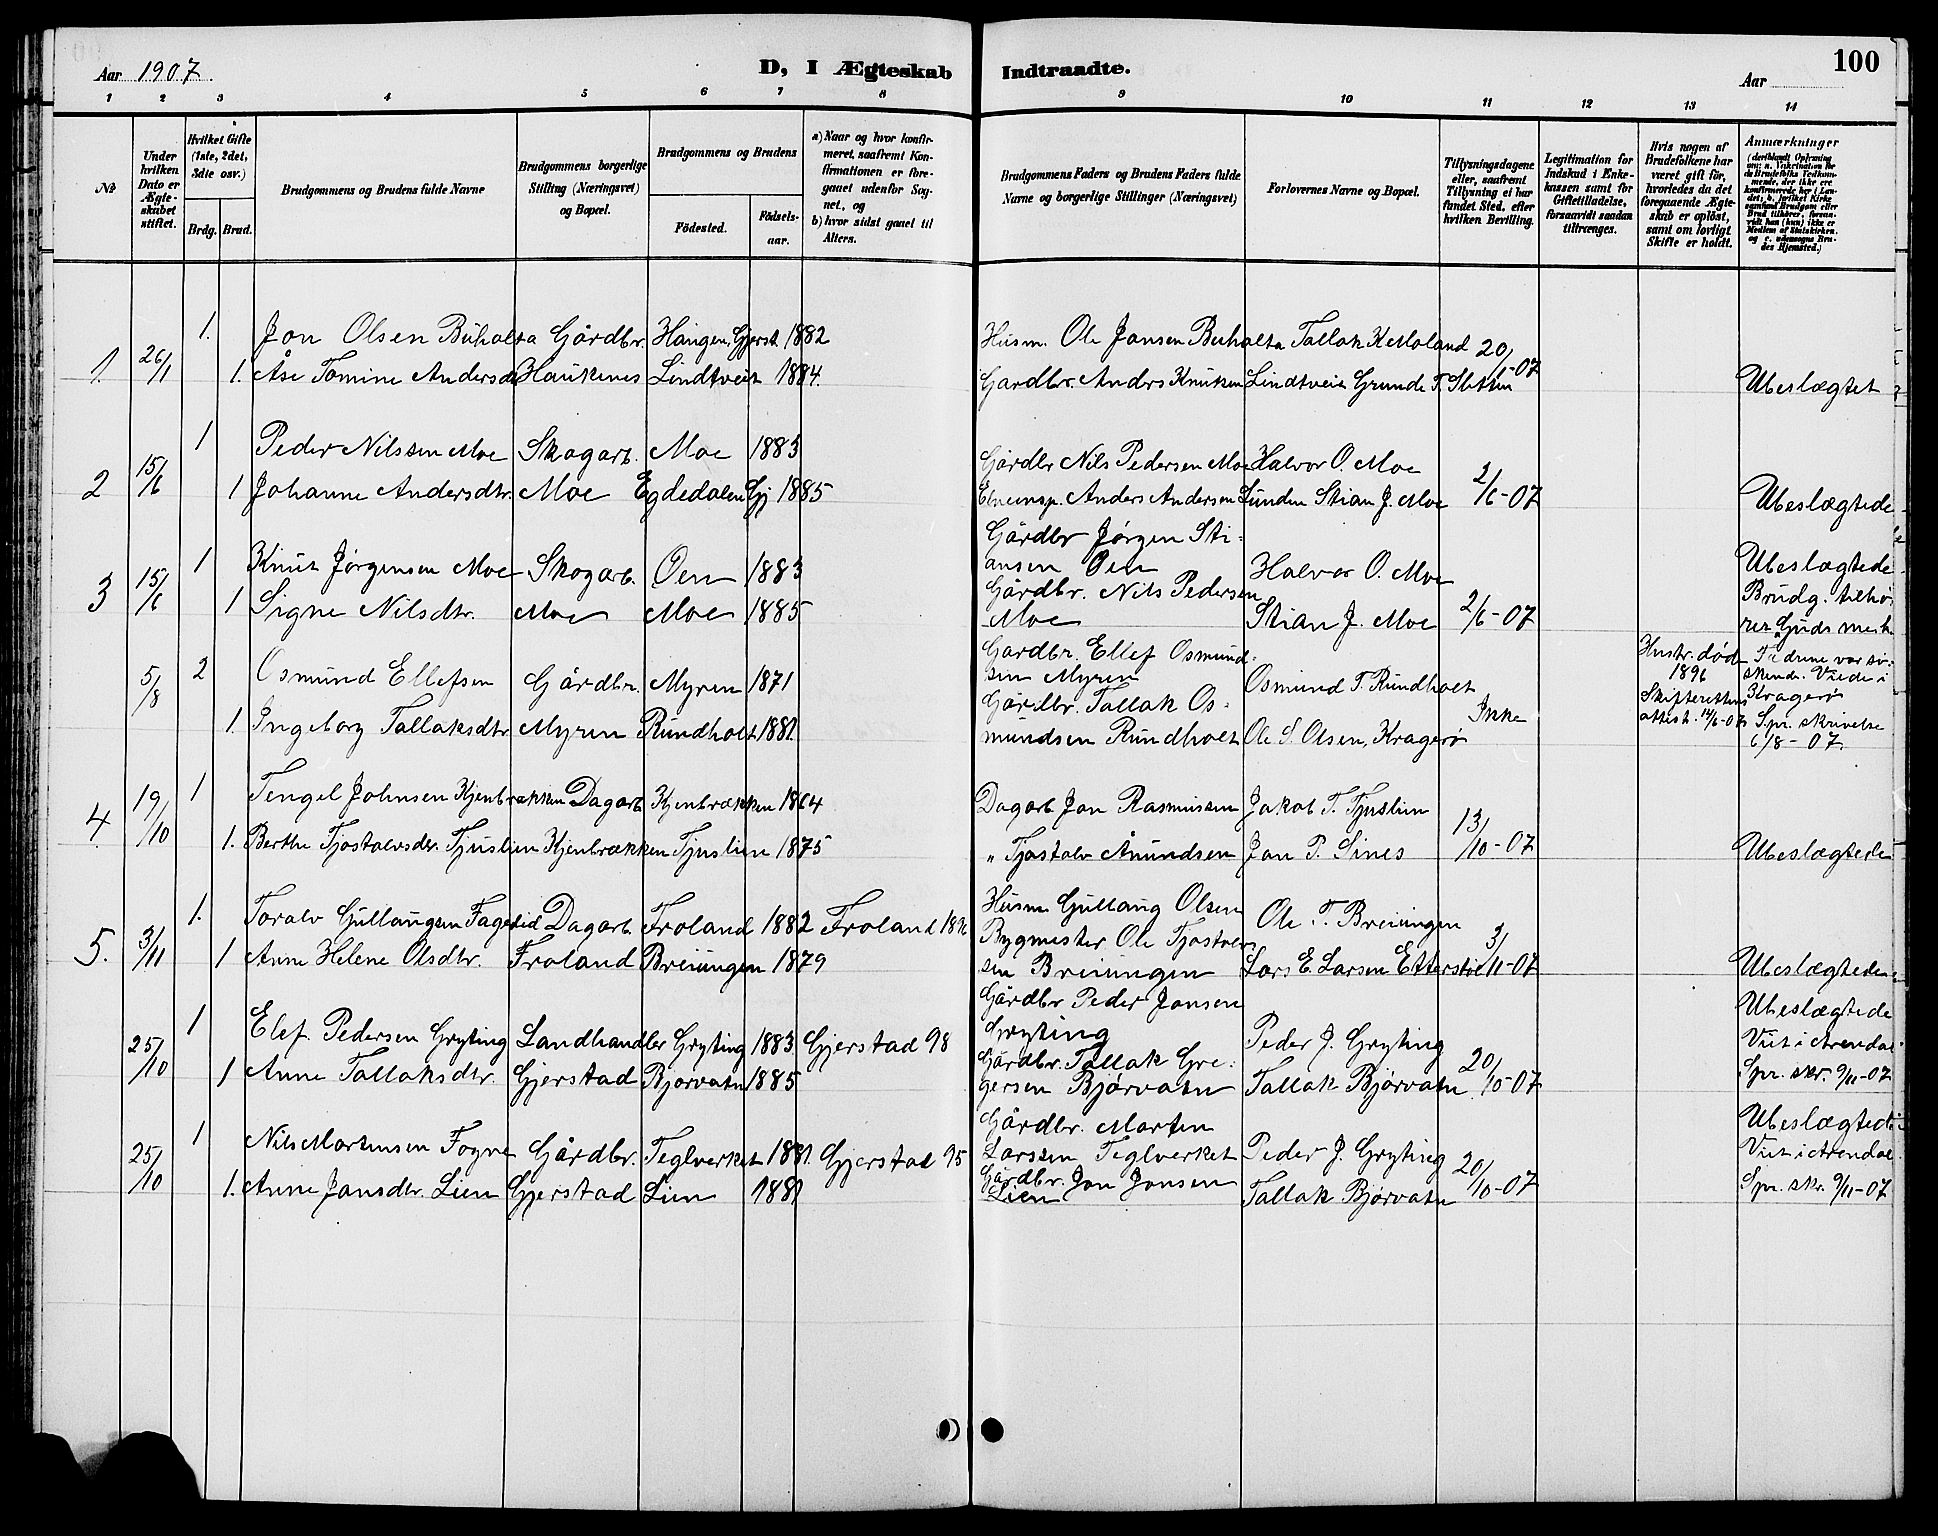 Aar 1907.
D, I Ægteskab
Indtraadte.
Aar
100
1 2 3 4 5 6 7 8 9 10 11 12 13 14
No
Under hvilken Dato er Ægteskabet stiftet.
Hvilket Gifte (1ste, 2det, 3die osv.)
Brdg. Brud.
Brudgommens og Brudens fulde Navne
Brudgommens borgerlige Stilling (Næringsvei) og Bopæl.
Brudgommens og Brudens
Födested.
Födselsaar.
a) Naar og hvor konfirmeret, saafremt Konfirmationen er foregaaet udenfor Sognet, og
b) hvor sidst gaaet til Alters.
Brudgommens Faders og Brudens Faders fulde Navne og borgerlige Stillinger (Næringsvei)
Forlovernes Navne og Bopæl.
Tillysningsdagene eller, saafremt Tillysning ei har fundet Sted, efter hvilken Bevilling.
Legitimation for Indskud i Enkekassen samt for Giftetilladelse, forsaavidt saadan tiltrænges.
Hvis nogen af Brudefolkene har været gift för, hvorledes da det foregaaende Ægteskab er oplöst, samt om lovligt Skifte er holdt.
Anmærkninger
1. 26/1 1. Jon Olsen Buholta Gårdbr. Haugen, Gjerst. 1882 Husm. Ole Jansen Buholta Tallak K Moland 20/1-07
1. Åse Tomine Andersd. Haukenes Lindtveit 1884. Gardbr. Anders Knuken Lindtveit Grunde T. Sletten Ubeslægtet
2 15/6 1 Peder Nilssen Moe Skogarb. Moe 1883 Gårdbr Nils Pedersen Moe Halvor O. Moe 2/6-07
1 Johanne Andersdtr. Moe Egdedalen Gj 1885 Anders Andersen Lunden Stian J. Moe Ubeslægtede
3 15/6 1 Knut Jørgensen Moe Skogarb. Øen 1883 Gårdbr Jørgen Stiansen Øen Halvor O. Moe Ubeslægtede
1 Signe Nilsdtr. Moe Moe 1885 Gårdbr. Nils Pedersen Moe Stian J. Moe 2/6-07 Brudg. tilhører Guds menh.
5/8 2 Osmund Ellefsen Gårdbr. Myren 1871 Gardbr. Ellef Osmundsen Myren Osmund T. Rundholt Hustr. død 1896 Skifterettens attest. 14/6-07
1. Ingeborg Tallaksdtr Myren Rundholt 1881. Gårdbr. Tallak Osmundsen Rundholt Ole S. Olsen, Kragerø Ikke Fædrene var søskende. Viede i Kragerø Spr. skrivelse 6/8-07.
4. 19/10 1 Tengel Johnsen Kjenbrækken Dagarb. Kjenbrækken 1864 Dagarb Jon Rasmussen Jakob T. Tjuslien 13/10-07
1. Berthe Tjostolvsdtr. Tjuslien Kjenbrækken Tjuslien 1875 " Tjostolv Anundsen Jon P. Sines Ubeslægtede
5. 3/11 1. Toralv Gullaugsen Fagerlid Dagarb. Froland 1882 Froland Husm. Gullaug Olsen Ole T. Breiungen 3/11-07
1 Anne Helene Olsdtr. Froland Breiungen 1879 Bygmester Ole Tjostolvsen Breiungen Lars E. Larsen Etterstøl Ubeslægtede
25/10 1 Elef. Pedersen Gryting Landhandler Gryting 1883 Gjerstad 98 Gårdbr Peder Jonsen Gryting Peder J. Gryting 20/10-07 Ubeslægtede
1 Anne Tallaksdtr. Gjerstad Bjorvatn 1885 Gårdbr. Tallak Gregersen Bjørvatn Tallak Bjørvatn Viet i Arendal. Spr. skr. 9/11-07
25/10 1 Nils Mortensen Fogne Gårdbr. Teglverket 1881. Gjerstad 95 Gårdbr. Morten Larssen Teglverket Peder J. Gryting 20/10-07 Ubeslægtede
1. Anne Jansdtr. Lien Gjerstad Lien 1881 Gårdbr. Jon Jonsen Lien Tallak Bjørvatn Viet i Arendal. Spr. skr. 9/11-07